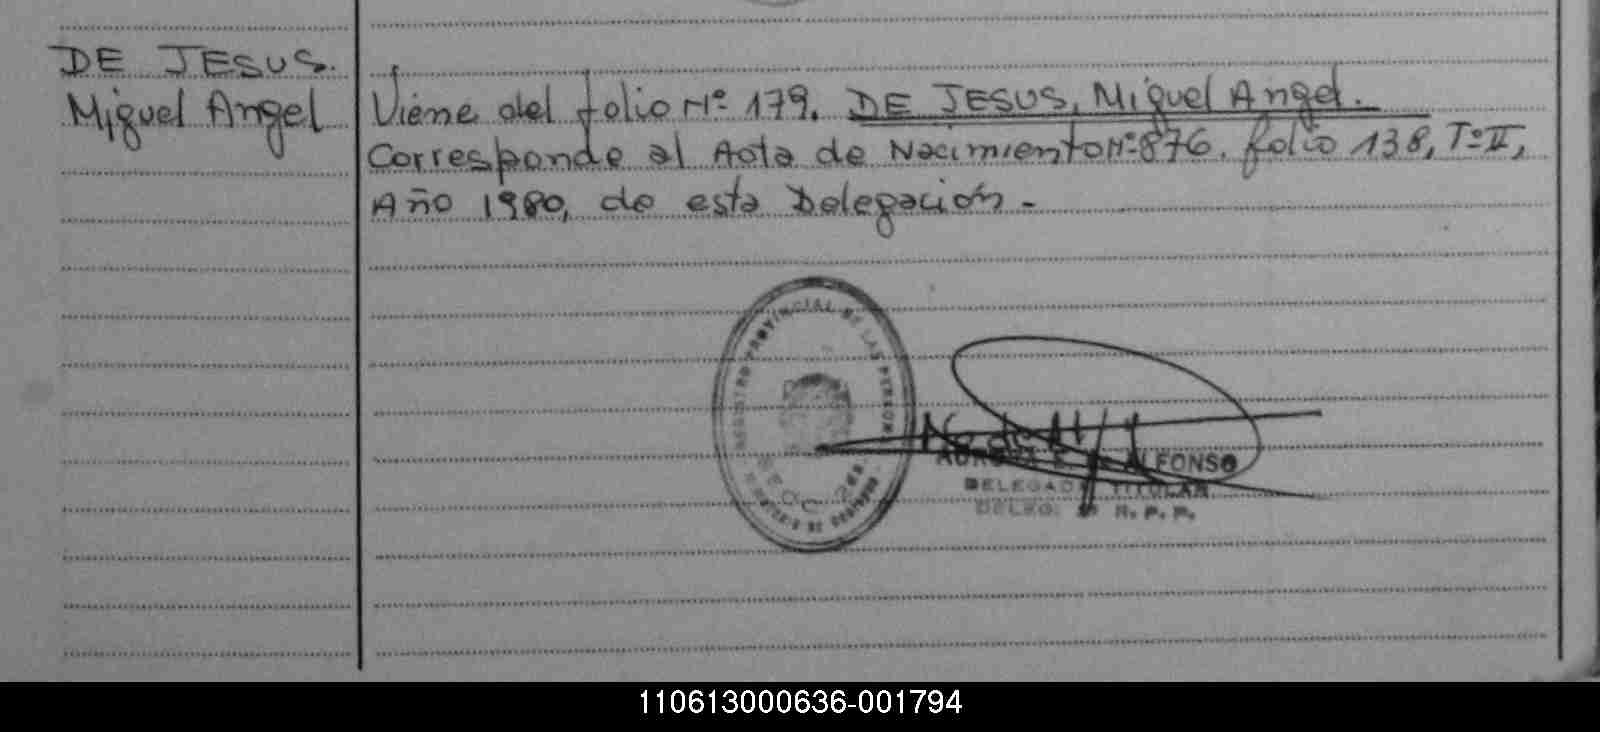 DE JESUS.
Miguel Angel
Viene del folio Nº 179. DE JESUS, Miguel Angel.
Corresponde al Acta de Nacimiento Nº 876, folio 138, Tº II,
Año 1980, de esta Delegación.-
REGISTRO PROVINCIAL DE LAS PERSONAS
MINISTERIO DE GOBIERNO
ALFONSO
DELEGADA TITULAR
DELEG. R. P. P.
110613000636-001794